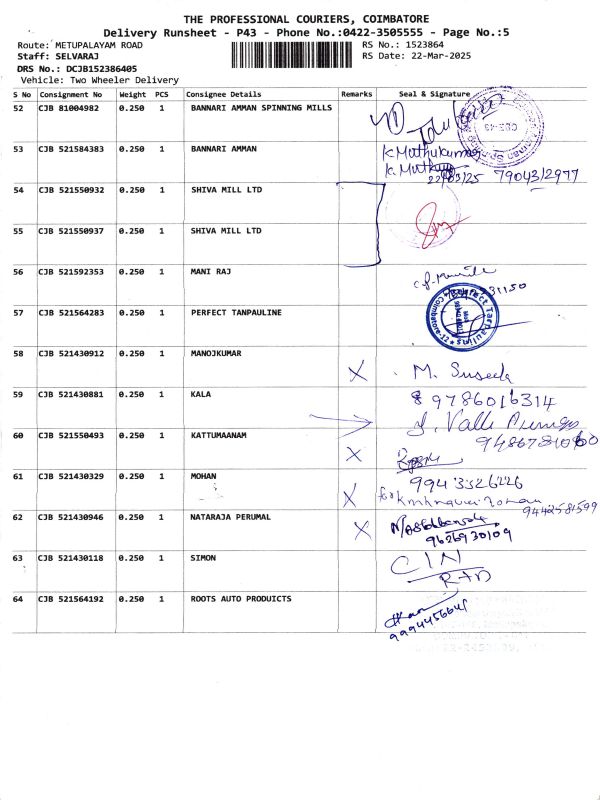 THE PROFESSIONAL COURIERS, COIMBATORE
Delivery Runsheet - P43 - Phone No.:0422-3505555 - Page No.:5
Route: METUPALAYAM ROAD
RS No.: 1523864
Staff: SELVARAJ
RS Date: 22-Mar-2025
DRS No.: DCJB152386405
Vehicle: Two Wheeler Delivery
S No Consignment No Weight PCS Consignee Details Remarks Seal & Signature
52 CJB 81004982 0.250 1 BANNARI AMMAN SPINNING MILLS
53 CJB 521584383 0.250 1 BANNARI AMMAN K Muthukumar
22/03/25 7904312977
54 CJB 521550932 0.250 1 SHIVA MILL LTD
55 CJB 521550937 0.250 1 SHIVA MILL LTD
56 CJB 521592353 0.250 1 MANI RAJ
57 CJB 521564283 0.250 1 PERFECT TANPAULINE
58 CJB 521430912 0.250 1 MANOJKUMAR X M. Suseela
59 CJB 521430881 0.250 1 KALA 9786016314
60 CJB 521550493 0.250 1 KATTUMAANAM X
61 CJB 521430329 0.250 1 MOHAN X 9943326226
9442581599
62 CJB 521430946 0.250 1 NATARAJA PERUMAL X
9626930109
63 CJB 521430118 0.250 1 SIMON
64 CJB 521564192 0.250 1 ROOTS AUTO PRODUICTS